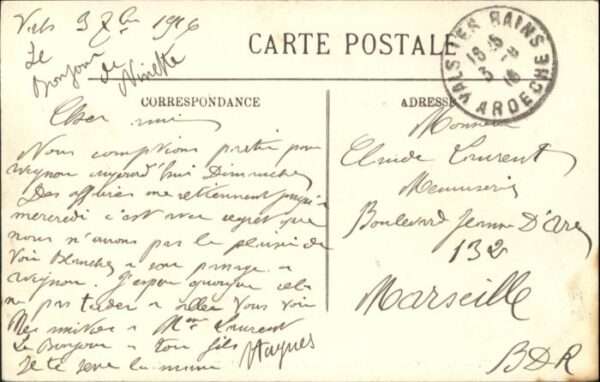 Vals 3 7bre 1916
Le
Bonjour
de
Ninette
CARTE POSTALE
VALS LES BAINS
ARDECHE
CORRESPONDANCE
ADRESSE
Cher ami
Nous comptions partir pour
aujourd'hui Dimanche
Des affaires me retiennent
mercredi c'est avec regret que
nous n'aurons pas le plaisir de
voir Blanche a son passage a
J'espere quoique cela
ne pas tarder a aller vous voir
Mes amities a Mme Laurent
Le Bonjour a ton fils
Je te serre la main
Monsieur
Claude Laurent
Menuiserie
Boulevard Jeanne D'Arc
132
Marseille
BDR